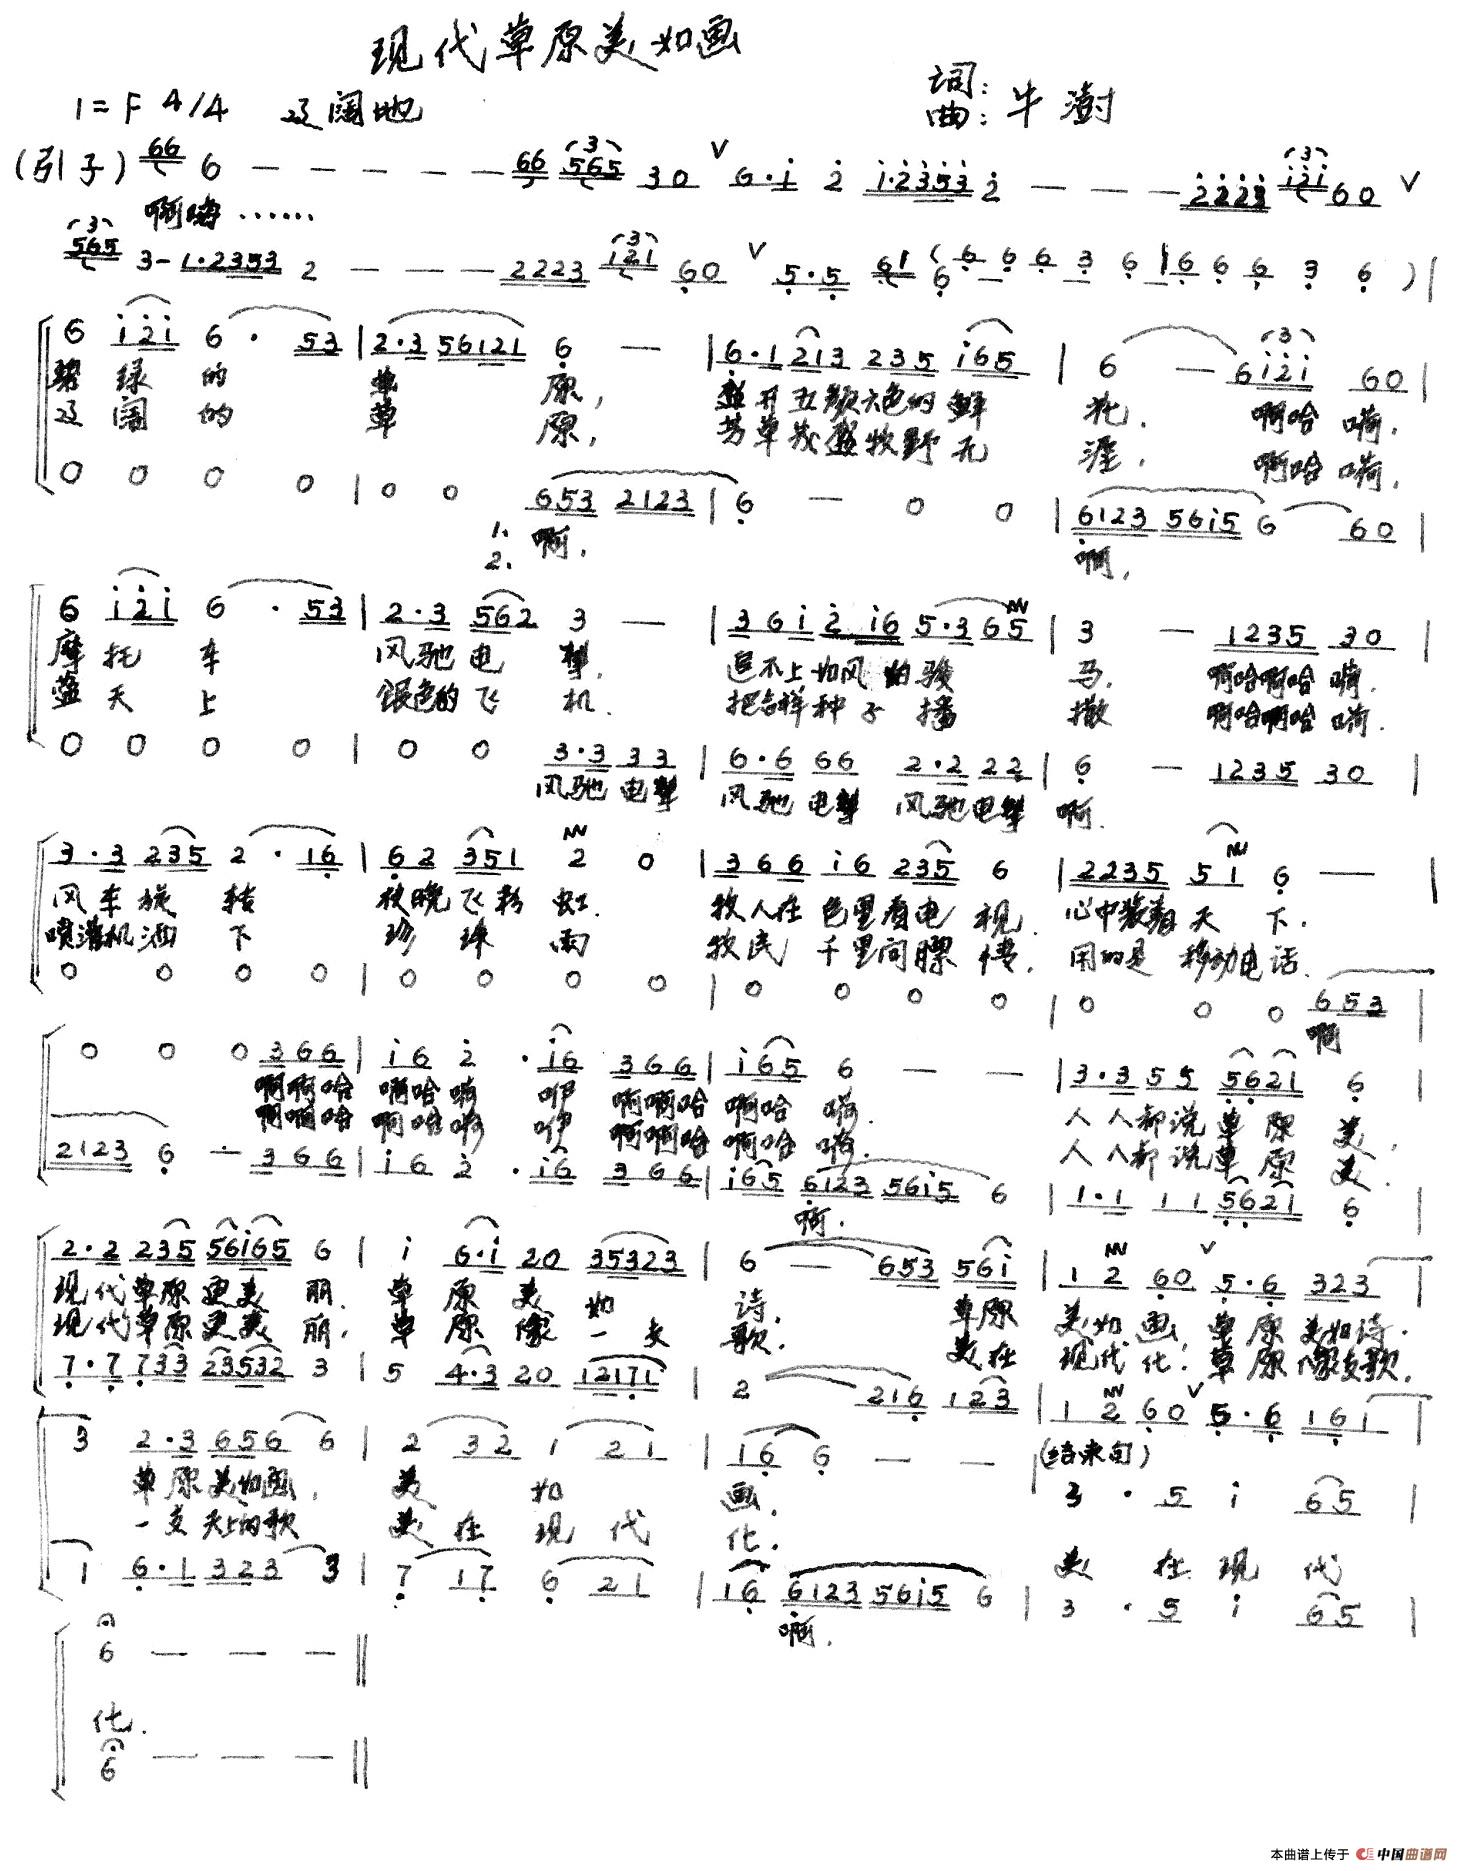 现代草原美如画
1=F 4/4 辽阔地
词:
曲: 牛澍
(引子) 66 6 — — — — — 66 565 30 V 6·i 2 i·2353 2 — — — 2223 i2i 60 V
啊嗬……
565 3- 1·2353 2 — — — 2223 i21 60 V 5·5 61 (6 6 6 3 6 | 6 6 6 3 6 ) |
6 i2i 6 · 53 | 2·3 56121 6 — | 6·1 213 235 i65 | 6 — 6i2i 60 |
碧绿的 草 原, 盛开五颜六色的鲜 花. 啊哈 嗬.
辽阔的 草 原, 芳草茂盛牧野无 涯. 啊哈 嗬.
0 0 0 0 | 0 0 653 2123 | 6 — 0 0 | 6123 56i5 6 60 |
1. 2. 啊. 啊.
6 i2i 6 · 53 | 2·3 562 3 — | 36i 2 i6 5·3 65 | 3 — 1235 30 |
摩托车 风驰电掣. 追不上如风的骏 马. 啊哈啊哈 嗬.
蓝天上 银色的飞机. 把吉祥种子播 撒 啊哈啊哈 嗬.
0 0 0 0 | 0 0 3·3 33 | 6·6 66 2·2 22 | 6 — 1235 30 |
风驰 电掣 风驰 电掣 风驰电掣 啊.
3·3 235 2 · 16 | 62 351 2 0 | 366 i6 235 6 | 2235 51 6 — |
风车旋 转 夜晚飞彩虹. 牧人在 包里看电视. 心中装着天下.
喷灌机洒 下 珍珠雨 牧民 千里问膘情. 用的是 移动电话.
0 0 0 0 | 0 0 0 0 | 0 0 0 0 | 0 0 0 653 |
啊
0 0 0 366 | i6 2 · i6 366 | i65 6 — — | 3·3 55 5621 6 |
啊啊哈 啊哈嗬 咿 啊啊哈 啊哈 嗬. 人人都说草原美,
啊啊哈 啊哈嗬 咿 啊啊哈 啊哈 嗬. 人人都说草原美.
2123 6 · — 366 | i6 2 · i6 366 | i65 6123 56i5 6 | 1·1 11 5621 6 |
啊.
2·2 235 56i65 6 | i 6·i 20 35323 | 6 — 653 56i | 12 60 V 5·6 323 |
现代草原更美丽. 草原美如 诗. 草原 美如画; 草原美如诗.
现代草原更美丽. 草原像一支 歌. 美在 现代化; 草原像支歌.
7·7 733 23532 3 | 5 4·3 20 12171 | 2 216 123 | 12 60 V 5·6 161 |
3 2·3 656 6 | 2 32 1 21 | 16 6 — — | (结束句) 3 · 5 i 65 |
草原美如画, 美 如 画. 美在现代
一支天上的歌 美在现代 化.
1 6·1 323 3 | 7 17 6 21 | 16 6123 56i5 6 | 3 · 5 i 65 |
啊.
6 — — — ||
化.
6 — — — ||
本曲谱上传于 中国曲谱网